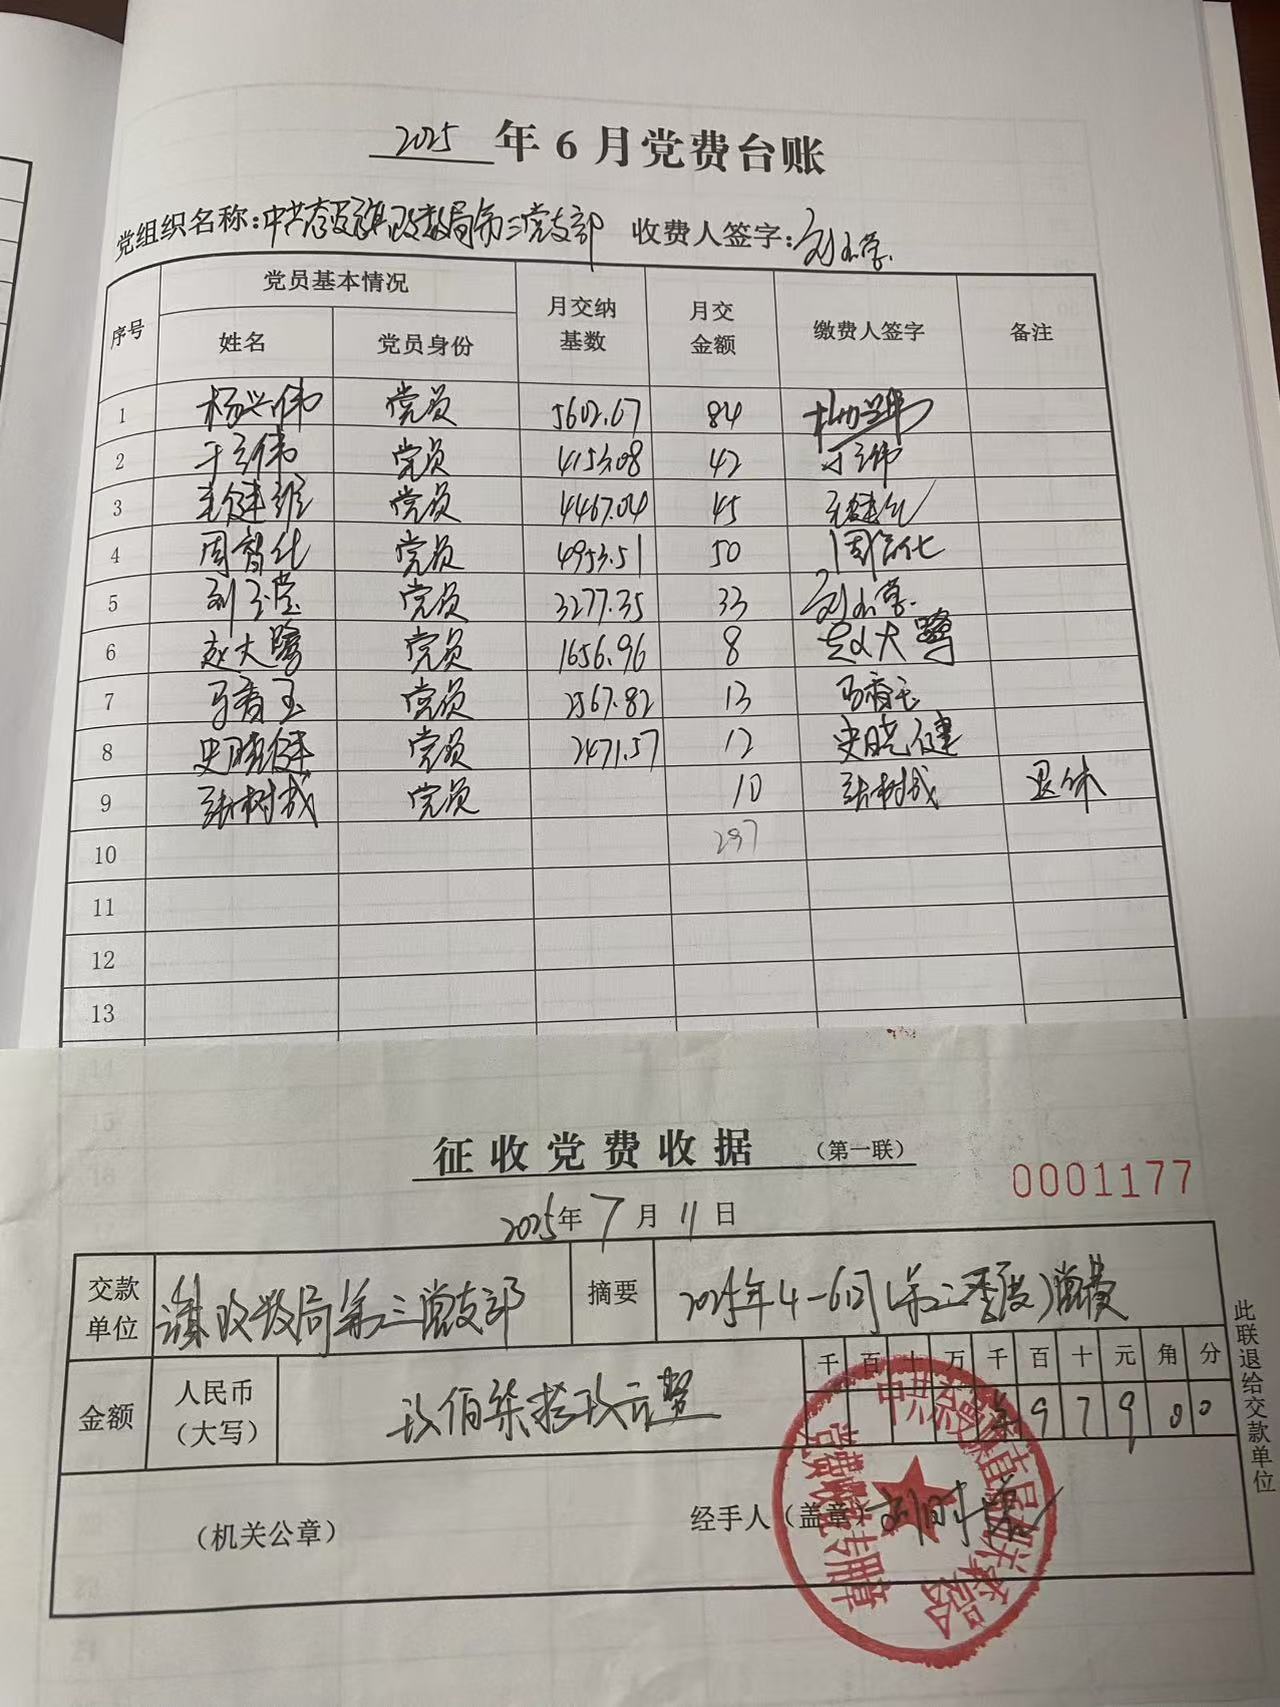 2025 年 6 月党费台账
党组织名称:中共奈曼旗政数局第三党支部 收费人签字:
序号 党员基本情况 月交纳基数 月交金额 缴费人签字 备注
姓名 党员身份
1 杨兴伟 党员 5602.67 84 杨兴伟
2 于立伟 党员 4153.08 42 于立伟
3 党员 4467.04 45
4 周智化 党员 4953.51 50 周智化
5 党员 3277.35 33
6 赵大鹭 党员 1656.96 8 赵大鹭
7 马香玉 党员 2567.82 13 马香玉
8 史晓健 党员 2471.57 12 史晓健
9 张树成 党员 10 张树成 退休
10 297
11
12
13
14
15
16
征收党费收据 (第一联)
0001177
2025年 7 月 11 日
交款单位 政数局第三党支部 摘要 2025年4-6月(第二季度)党费
金额 人民币(大写) 玖佰柒拾玖元整 千 百 十 万 千 百 十 元 角 分
9 7 9 0 0
(机关公章) 经手人(盖章)
此联退给交款单位